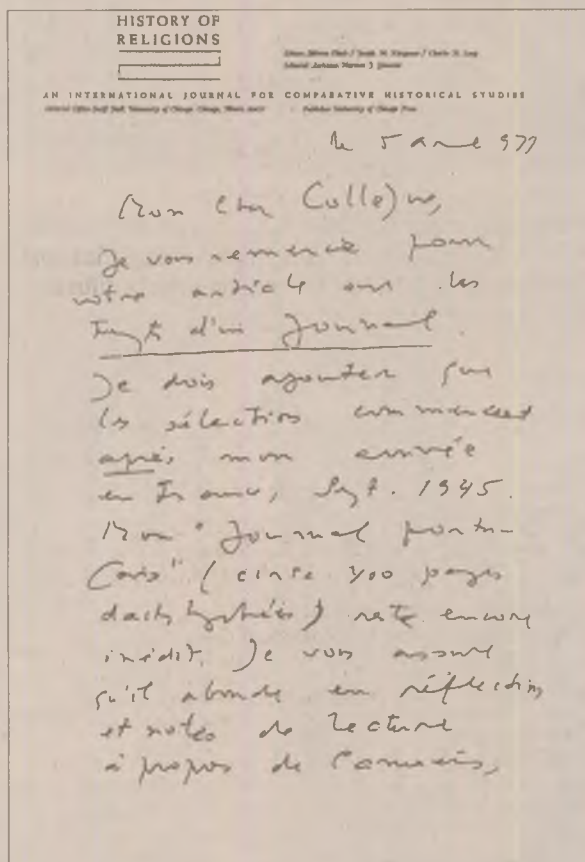 HISTORY OF
RELIGIONS
AN INTERNATIONAL JOURNAL FOR COMPARATIVE HISTORICAL STUDIES
le 5 avril 977
Mon cher Collègue,
Je vous remercie pour
votre article sur les
d'un Journal.
Je dois ajouter que
les sélections commencent
après mon arrivée
en France, Sept. 1945.
Mon "Journal portu-
gais" (circa 400 pages
dactylographiées) reste encore
inédit. Je vous assure
qu'il abonde en réflections
et notes de lecture
à propos de Camoens,